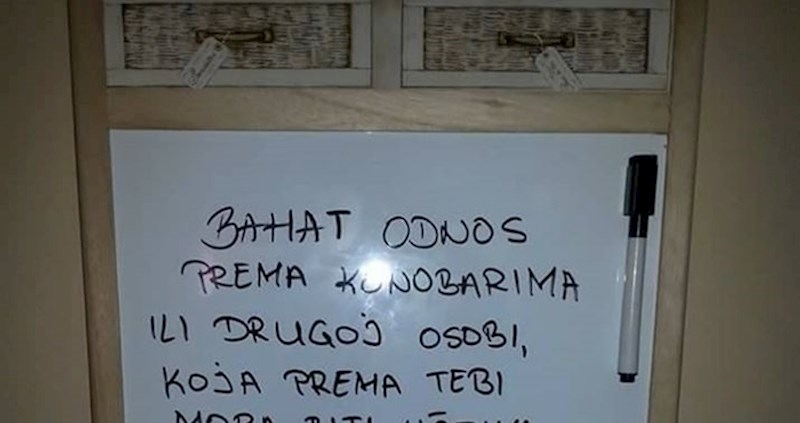 BAHAT ODNOS
PREMA KONOBARIMA
ILI DRUGOJ OSOBI,
KOJA PREMA TEBI
MORA BITI